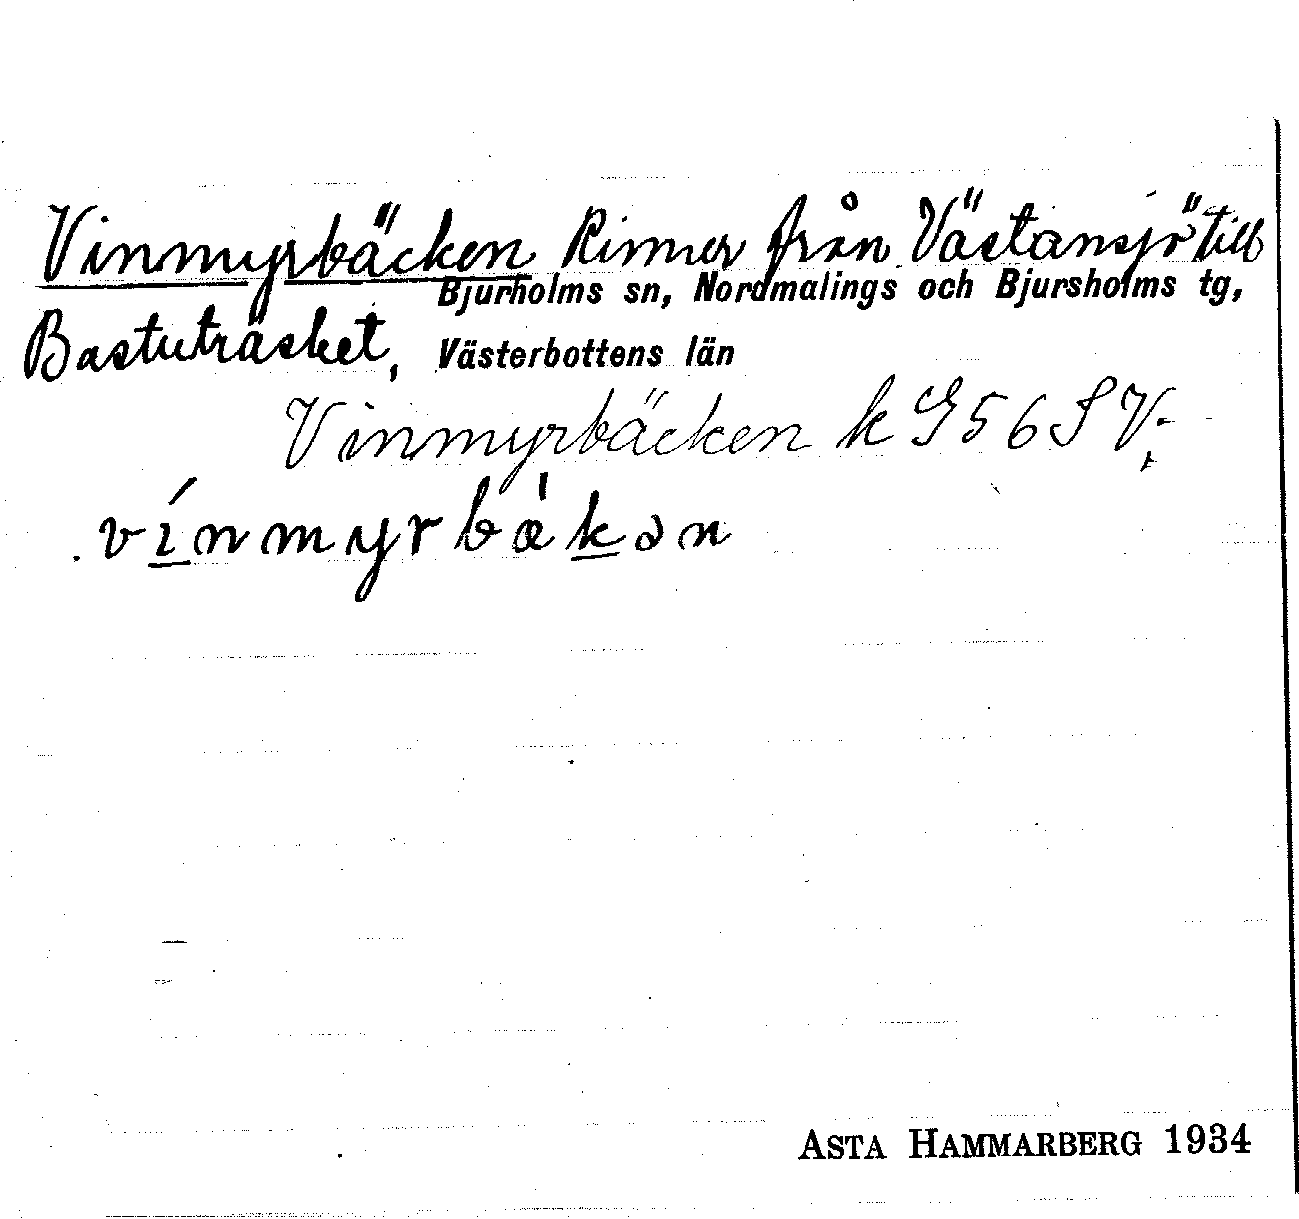 Vinmyrbäcken Rinner från Västansjö till
Bjurholms sn, Nordmalings och Bjursholms tg,
Bastuträsket, Västerbottens län
Vinmyrbäcken k G 56 SV.
vínmyrbækən
ASTA HAMMARBERG 1934